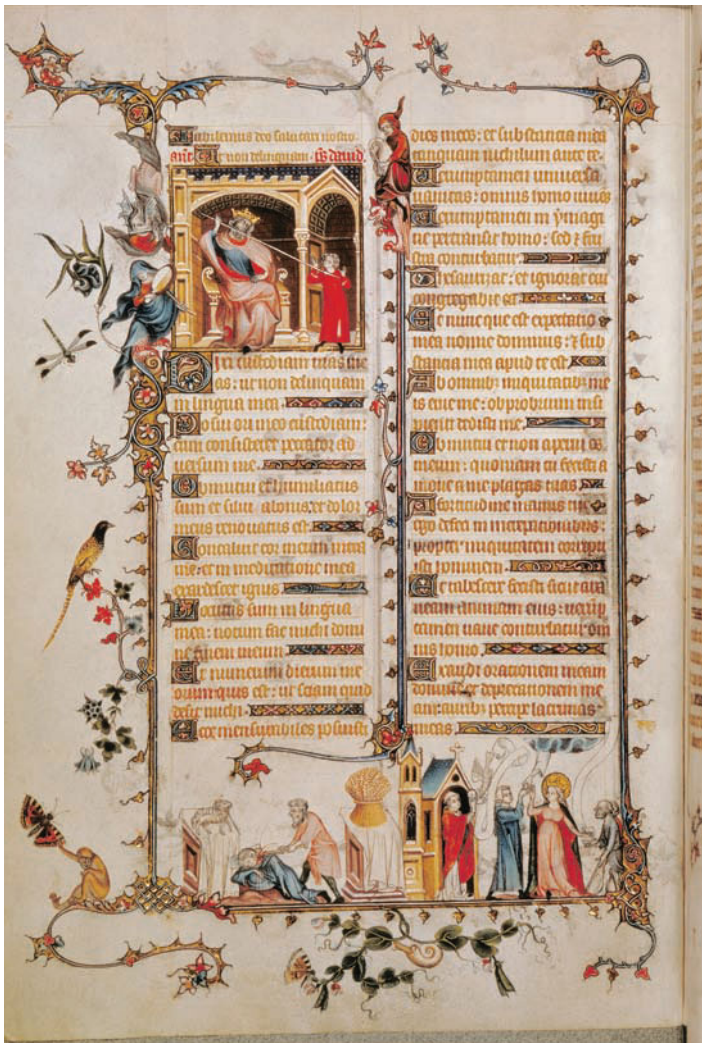 Iubilemus deo salutari nostro.
ant. Ut non delinquam. ps dauid.
Dixi custodiam uias me
as: ut non delinquam
in lingua mea.
Posui ori meo custodiam:
cum consisteret peccator ad
uersum me.
Obmutui et humiliatus
sum et silui a bonis: et dolor
meus renouatus est.
Concaluit cor meum intra
me: et in meditatione mea
exardescet ignis
Locutus sum in lingua
mea: notum fac michi domi
ne finem meum
Et numerum dierum me
orum quis est: ut sciam quid
desit michi.
Ecce mensurabiles posuisti
dies meos: et substancia mea
tanquam nichilum ante te.
Uerumptamen uniuersa
uanitas: omnis homo uiuens
Uerumptamen in ymagi
ne pertransit homo: sed et frus
tra conturbatur
Thesaurizat: et ignorat cui
congregabit ea
Et nunc que est expectatio
mea nonne dominus: et sub
stancia mea apud te est
Ab omnibus iniquitatibus me
is erue me: obprobrium insi
pienti dedisti me
Obmutui et non aperui os
meum: quoniam tu fecisti a
moue a me plagas tuas
A fortitudine manus tue
ego defeci in increpationibus:
propter iniquitatem corripu
isti hominem.
Et tabescere fecisti sicut ara
neam animam eius: uerump
tamen uane conturbatur om
nis homo.
Exaudi orationem meam
domine et deprecationem me
am: auribus percipe lacrimas
meas.